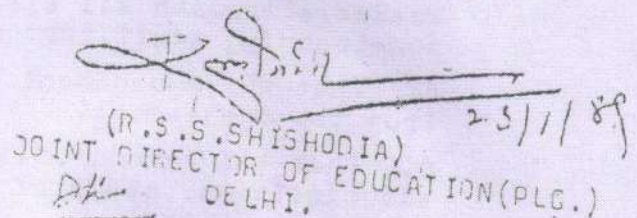 23/1/89
(R.S.S.SHISHODIA)
JOINT DIRECTOR OF EDUCATION(PLG.)
DELHI.